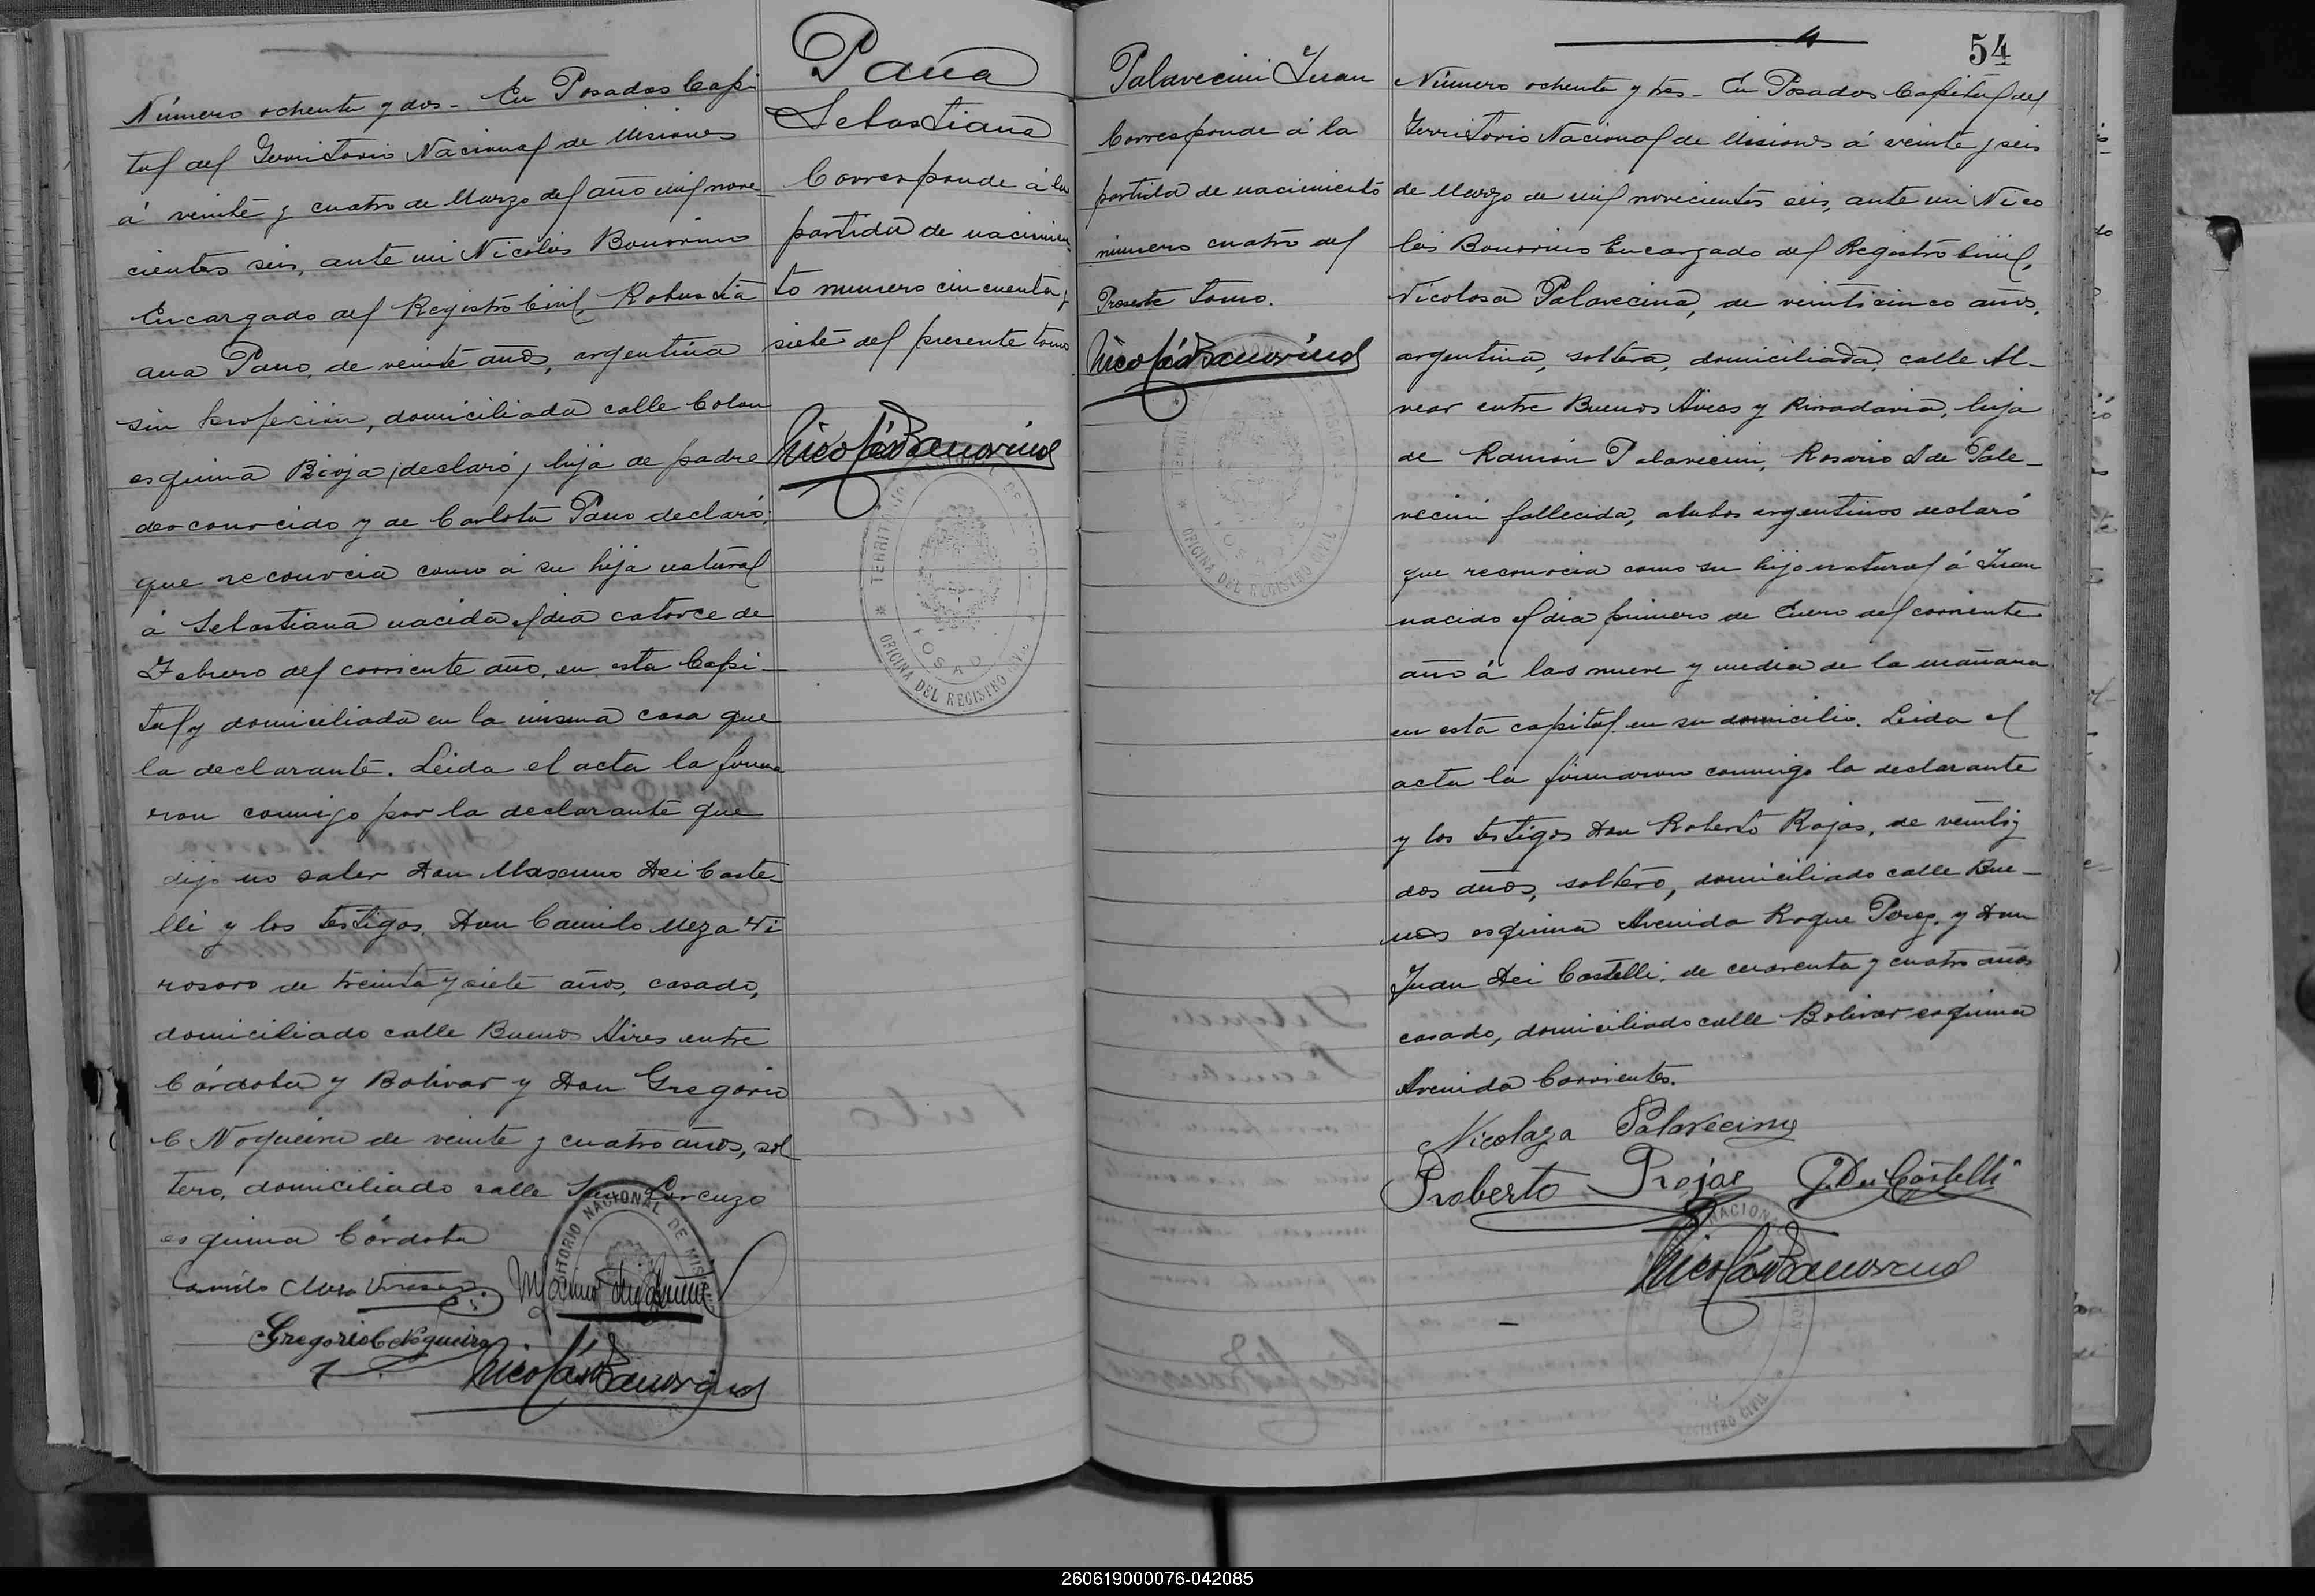 Número ochenta y dos - En Posadas Capi
tal del Territorio Nacional de Misiones
á veinte y cuatro de Marzo del año mil nove
cientos seis, ante mi Nicolás Bonorino
Encargado del Registro Civil, Robustia
ana Pano, de veinte años, argentina
sin profesion, domiciliada calle Colon
esquina Rioja (declaró) hija de padre
desconocido y de Carlota Pano declaró:
que reconocia como á su hija natural
á Sebastiana nacida el dia catorce de
Febrero del corriente año, en esta Capi-
tal y domiciliada en la misma casa que
la declarante. Leida el acta la firma
ron conmigo por la declarante que
dijo no saber Don Maximo Dei Caste-
lli y los testigos Don Camilo Meza Vi
rosoro de treinta y siete años, casado,
domiciliado calle Buenos Aires entre
Córdoba y Bolivar y Don Gregorio
C Nogueira de veinte y cuatro años, sol
tero, domiciliado calle San Lorenzo
esquina Córdoba
Camilo Meza Virasoro
Gregorio C Nogueira
Nicolás Bonorino
TERRITORIO NACIONAL DE MISIONES
Pana
Sebastiana
Corresponde á la
partida de nacimien
to numero cincuenta y
siete del presente tomo
Nicolás Bonorino
TERRITORIO NACIONAL DE MISIONES
POSADAS
OFICINA DEL REGISTRO CIVIL
Palavecini Juan
Corresponde á la
partida de nacimiento
número cuatro del
Presente tomo.
Nicolás Bonorino
OFICINA DEL REGISTRO CIVIL
4
54
Número ochenta y tres - En Posadas Capital del
Territorio Nacional de Misiones á veinte y seis
de Marzo de mil novecientos seis, ante mi Nico
lás Bonorino Encargado del Registro Civil,
Nicolosa Palavecina, de veinticinco años,
argentina, soltera, domiciliada calle Al-
vear entre Buenos Aires y Rivadavia, hija
de Ramón Palavecini, Rosario S de Pala-
vecini fallecida, ambos argentinos declaró
que reconocia como su hijo natural á Juan
nacido el dia primero de Enero del corriente
año á las nueve y media de la mañana
en esta capital en su domicilio. Leida el
acta la firmaron conmigo la declarante
y los testigos Don Roberto Rojas, de veinti y
dos años, soltero, domiciliado calle Bue-
nos esquina Avenida Roque Perez y Don
Juan Dei Castelli, de cuarenta y cuatro años
casado, domiciliado calle Bolivar esquina
Avenida Corrientes.
Nicolaza Palavecino
Roberto Rojas J. Dei Castelli
Nicolás Bonorino
REGISTRO CIVIL
260619000076-042085